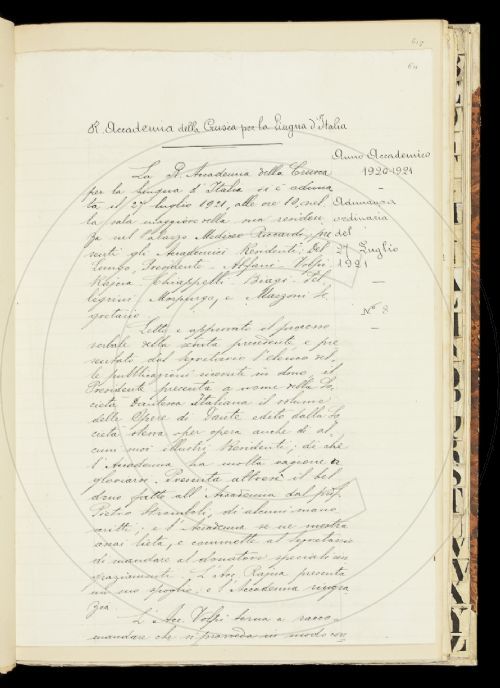 617
611
R. Accademia della Crusca per la Lingua d'Italia
Anno Accademico
1920-1921
Adunanza
ordinaria
del
27 Luglio
1921
Nº 8
La R. Accademia della Crusca
per la Lingua d'Italia si è aduna
ta il 27 luglio 1921, alle ore 10, nel
la sala maggiore della sua residen
za nel Palazzo Mediceo Riccardi, pre
senti gli Accademici Residenti: Del
Lungo, Presidente - Alfani - Volpi
Rajna - Chiappelli - Biagi - Pel
legrini, Morpurgo, e Mazzoni Se
gretario.
Letto e approvato il processo
verbale della seduta precedente e pre
sentato dal Segretario l'elenco del
le pubblicazioni ricevute in dono, il
Presidente presenta a nome della So
cietà Dantesca Italiana il volume
delle Opere di Dante edito dalla So
cietà stessa per opera anche di al
cuni suoi illustri Residenti; di che
l'Accademia ha molta ragione di
gloriarsi. Presenta altresì il bel
dono fatto all'Accademia dal prof.
Pietro Stromboli, di alcuni mano
scritti; e l'Accademia se ne mostra
assai lieta, e commette al Segretario
di mandare al donatore speciali rin
graziamenti. L'Acc. Rajna presenta
un suo spoglio, e l'Accademia ringra
zia.
L'Acc. Volpi torna a racco-
mandare che si provveda in modo con